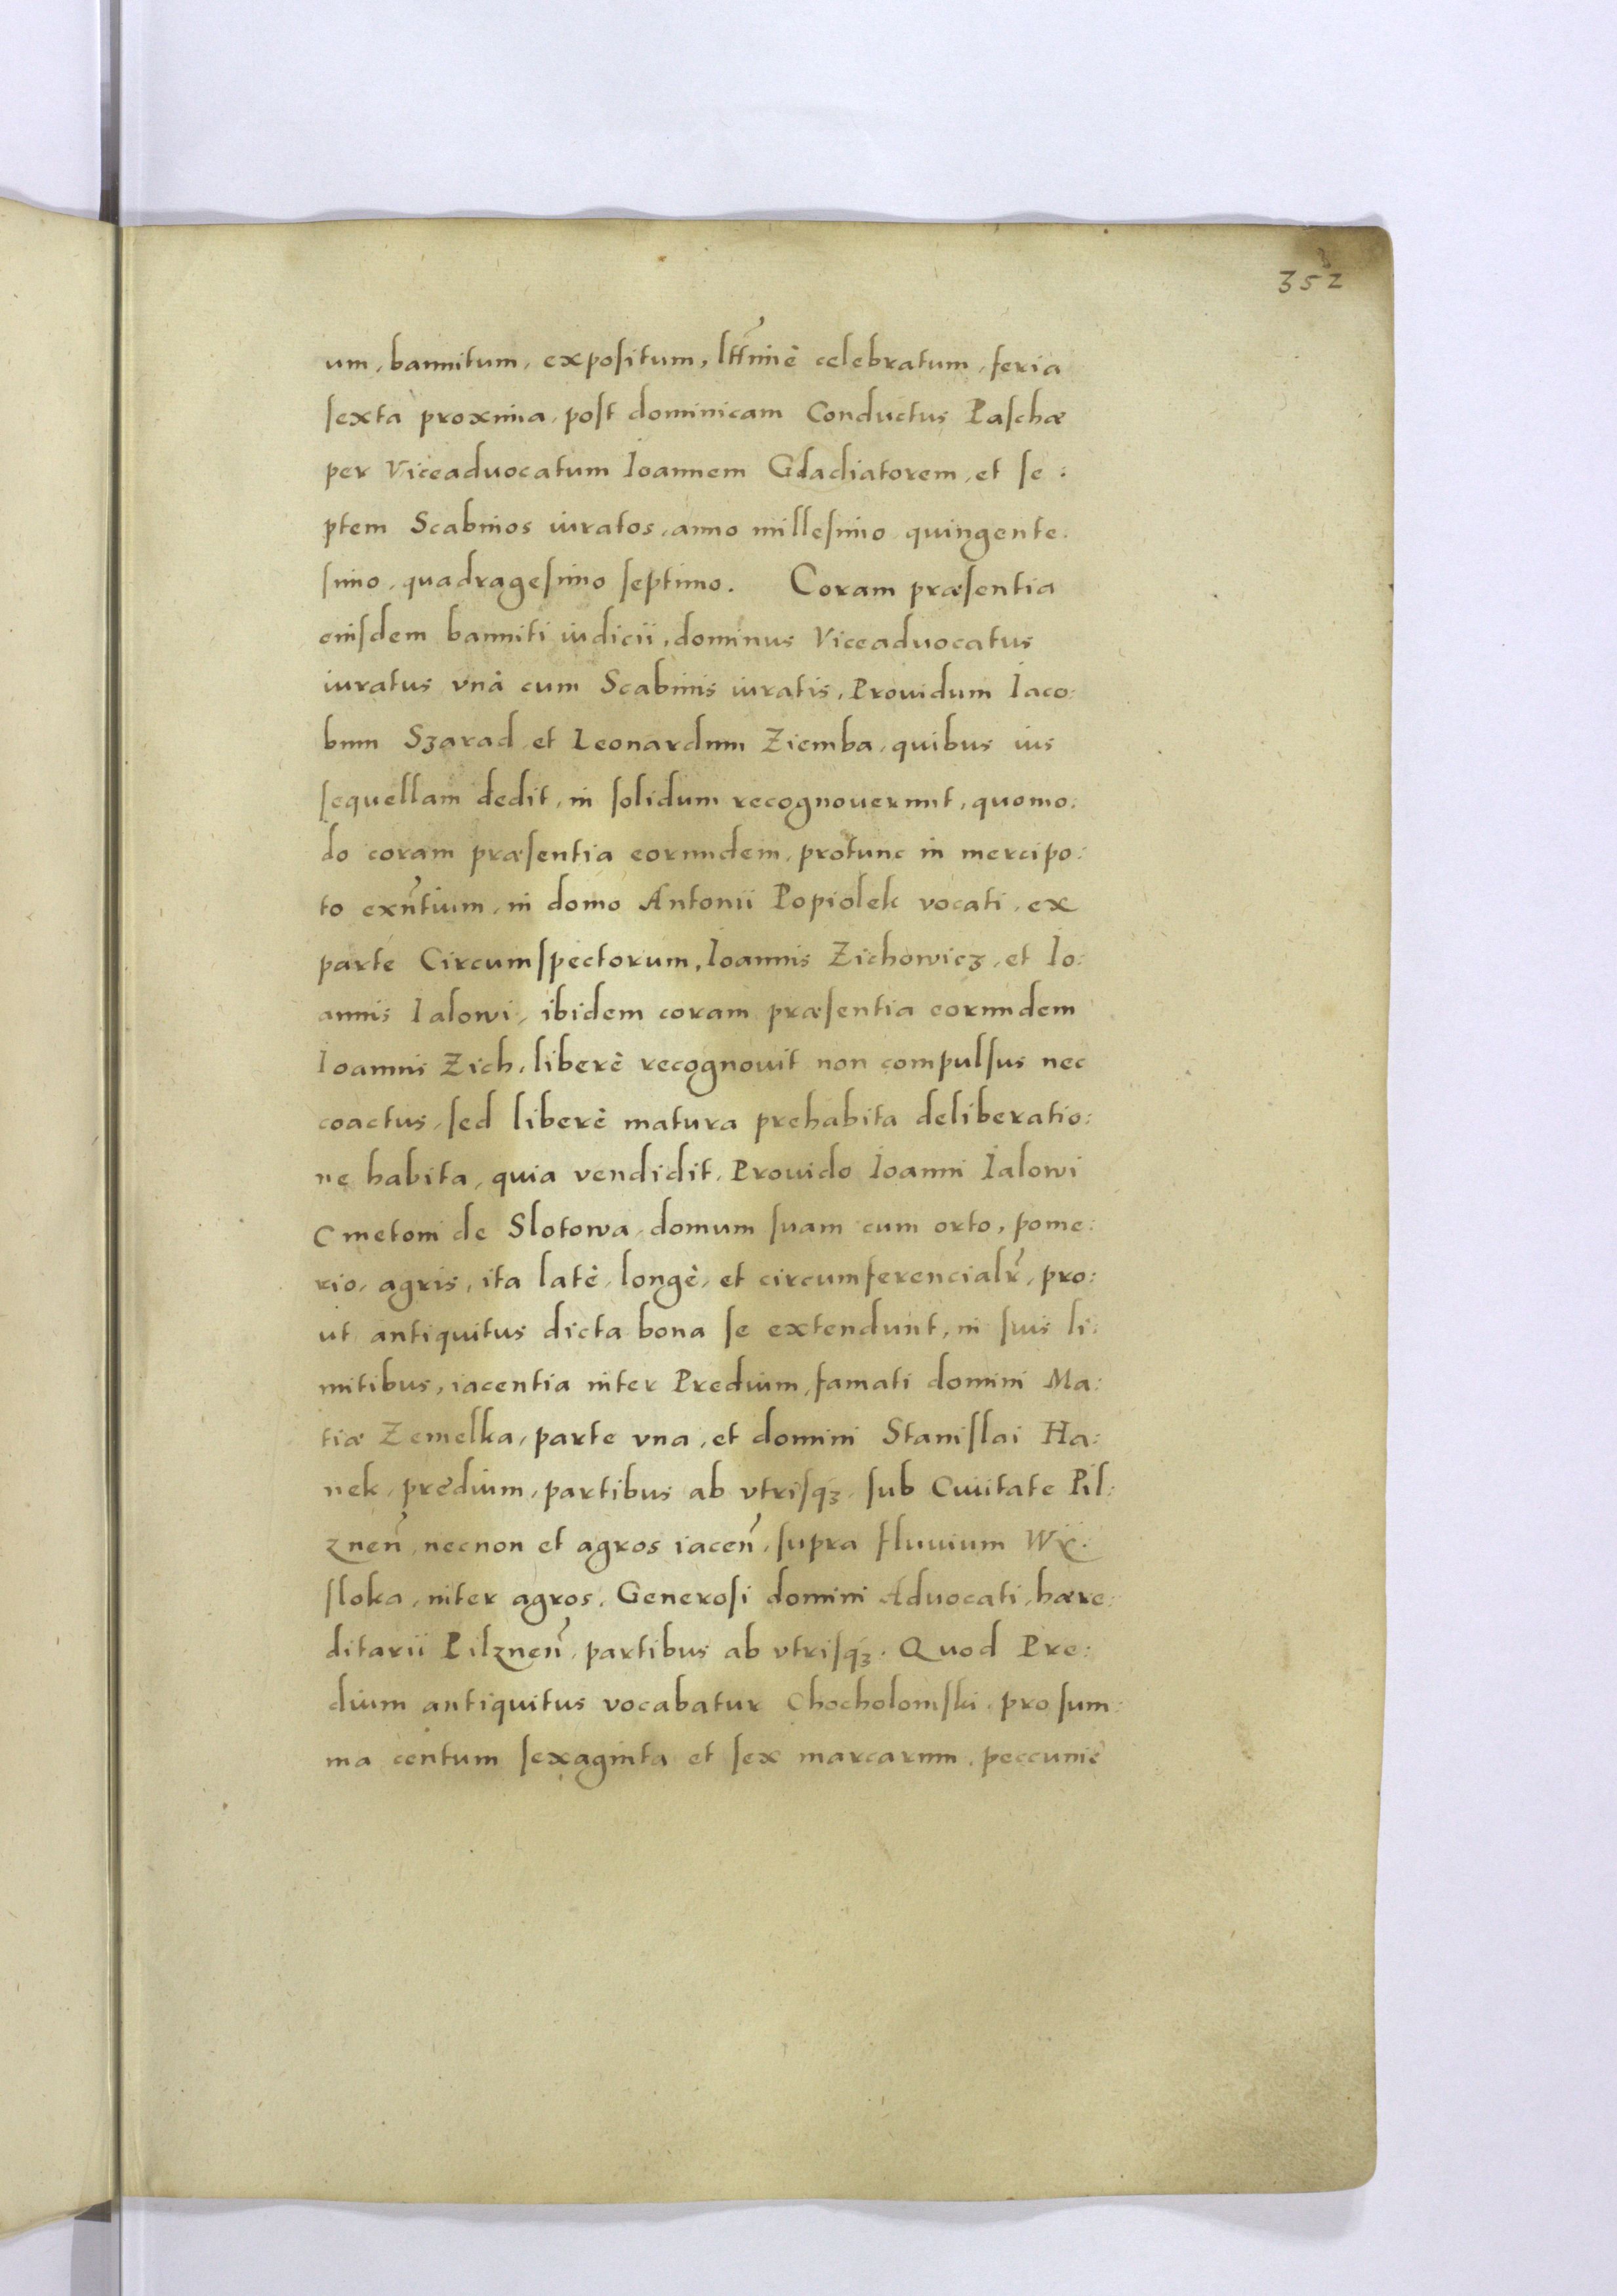 352
um, bannitum, expositum, lttimè celebratum, feria
sexta proxima, post dominicam Conductus Paschæ
per Viceaduocatum Ioannem Gdadiatorem, et se:
ptem Scabinos iuratos, anno millesimo quingente.
simo, quadragesimo septimo. Coram præsentia
eiusdem banniti iudicii, dominus Viceaduocatus
iuratus vnà cum Scabinis iuratis, Prouidum Iaco:
bum Szarad et Leonardum Ziemba, quibus ius
sequellam dedit, in solidum recognouerunt, quomo:
do coram præsentia eorundem, protunc in mercipo:
to exñtium, in domo Antonii Popiolek vocati, ex
parte Circumspectorum, Ioannis Zichowicz, et Io:
annis Ialowi, ibidem coram præsentia eorundem
Ioannis Zich, liberè recognouit non compulsus nec
coactus, sed liberè matura prehabita deliberatio:
ne habita, quia vendidit, Prouido Ioanni Ialowi
Cmetoni de Slotowa, domum suam cum orto, pome:
rio, agris, ita latè, longè, et circumferencialr̃, pro:
ut antiquitus dicta bona se extendunt, in suis li:
mitibus, iacentia inter Predium, famati domini Ma:
tiæ Zemelka, parte vna, et domini Stanislai Ha:
nek, predium, partibus ab vtrisqꝫ, sub Ciuitate Pil:
znen̄, necnon et agros iacen̄, supra fluuium Wÿ:
sloka, inter agros, Generosi domini Aduocati, hære:
ditarii Pilznen̄, partibus ab vtrisqꝫ. Quod Pre:
dium antiquitus vocabatur Chocholomski, pro sum:
ma centum sexaginta et sex marcarum, peccunie